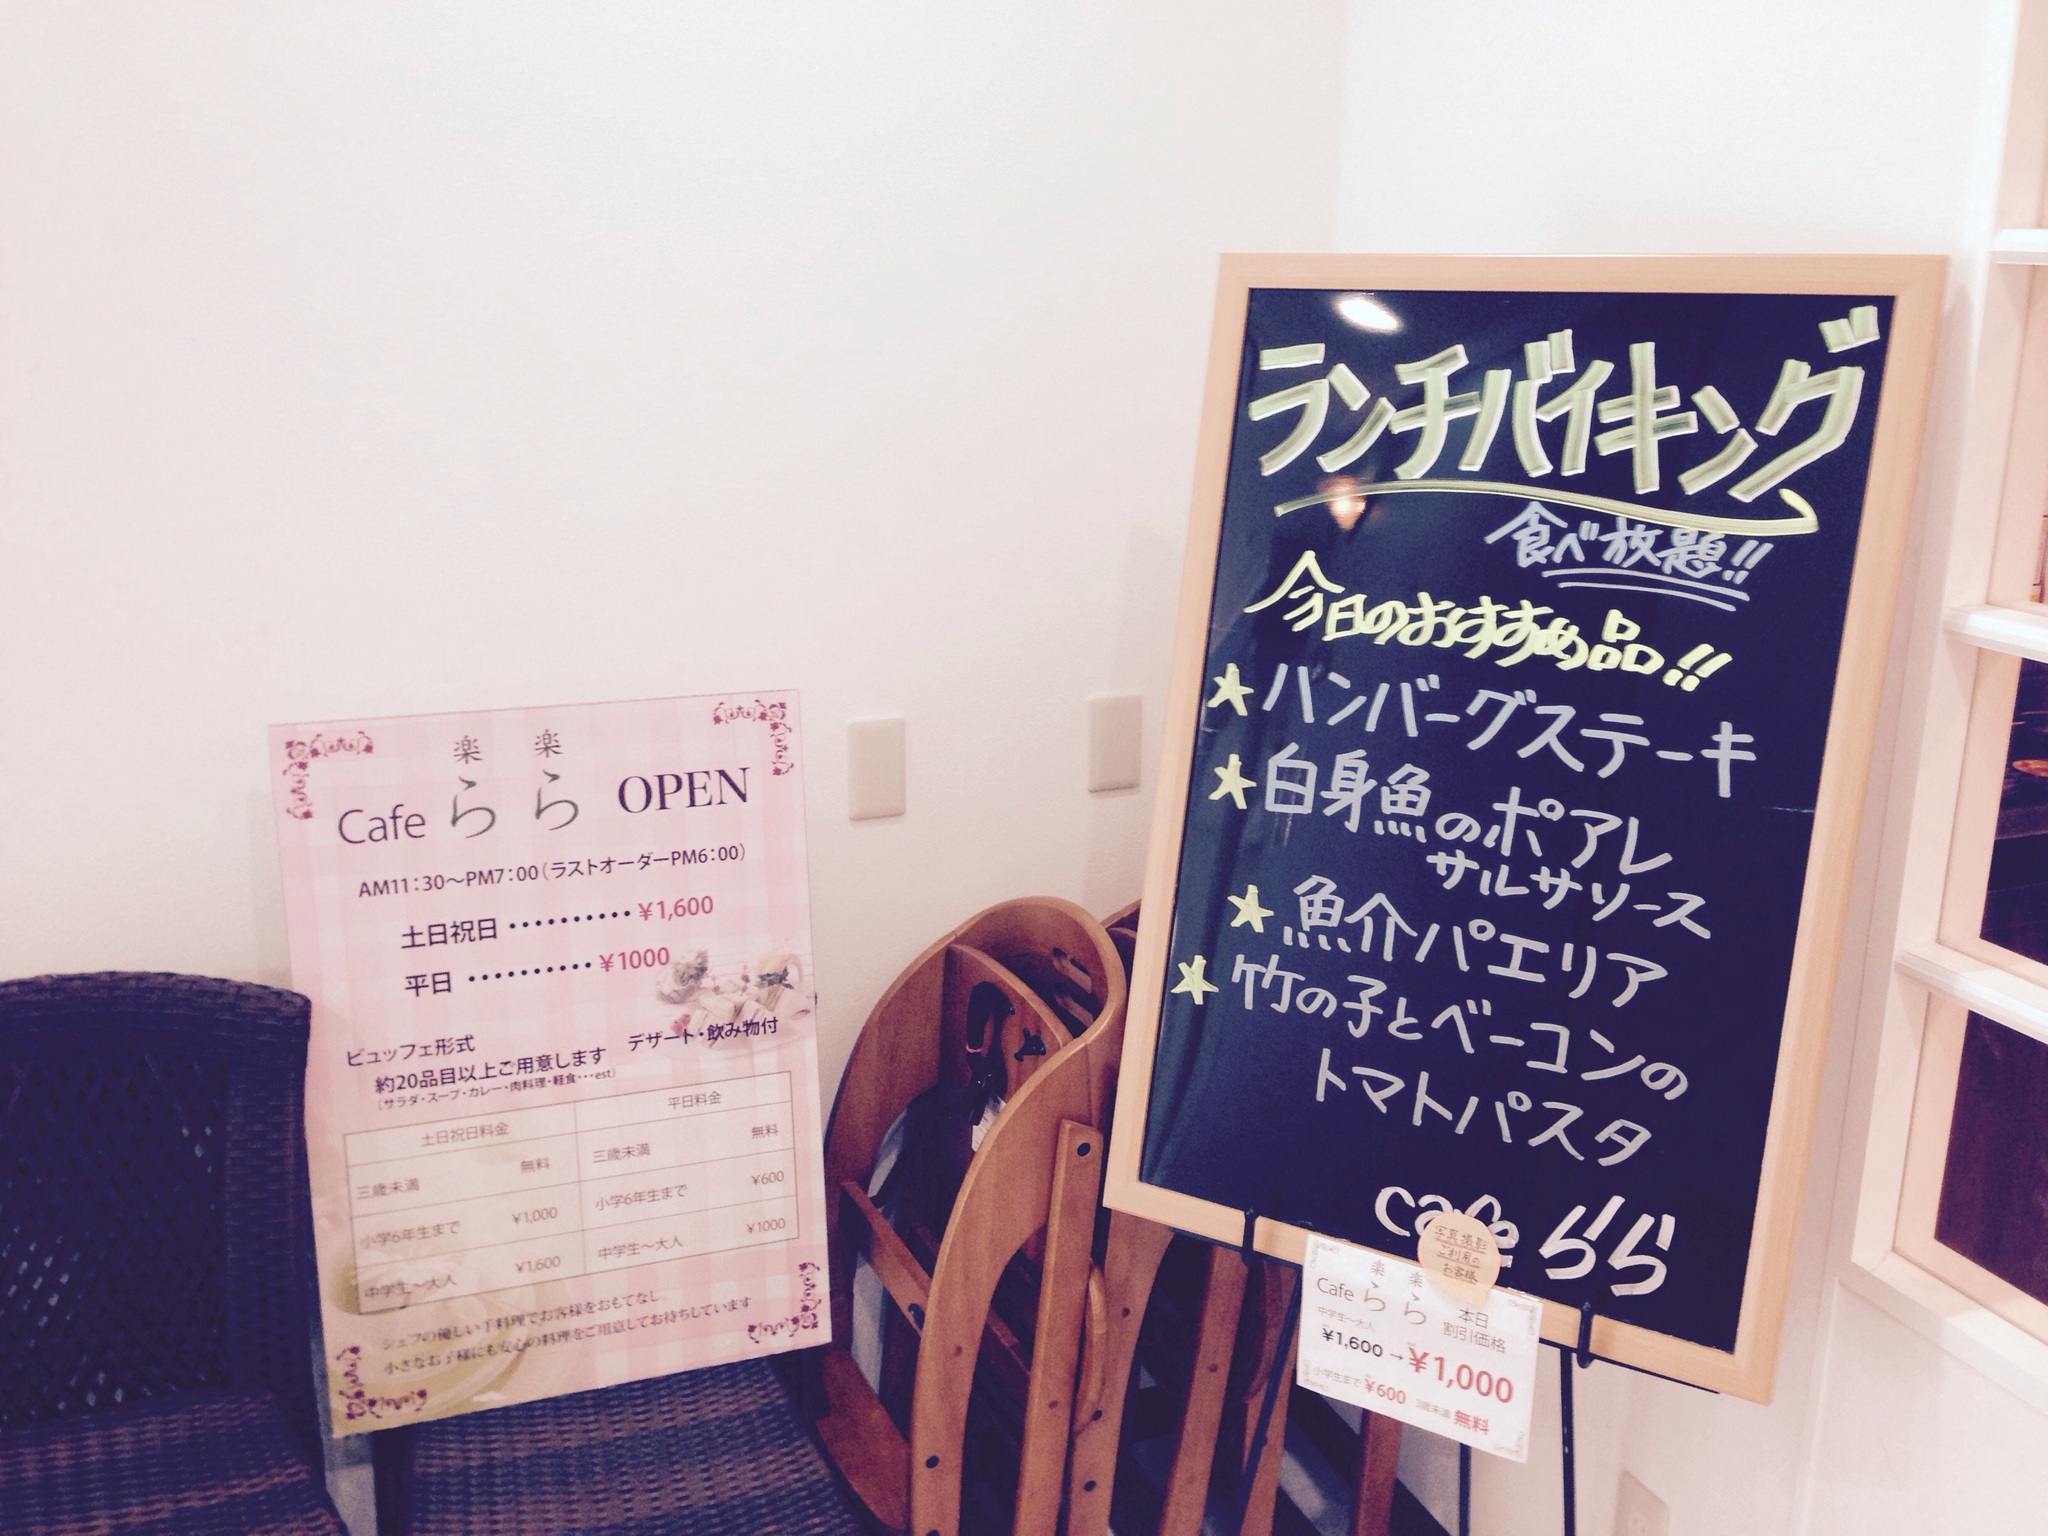 楽 楽
Cafe らら OPEN
AM11:30～PM7:00（ラストオーダーPM6:00）
土日祝日 ･･････････ ¥1,600
平日 ･･････････ ¥1000
ビュッフェ形式
約20品目以上ご用意します デザート・飲み物付
（サラダ・スープ・カレー・肉料理・軽食･･･est）
土日祝日料金 平日料金
三歳未満 無料 三歳未満 無料
小学6年生まで ¥1,000 小学6年生まで ¥600
中学生～大人 ¥1,600 中学生～大人 ¥1000
シェフの優しい手料理でお客様をおもてなし
小さなお子様にも安心の料理をご用意してお待ちしています
ランチバイキング
食べ放題!!
今日のおすすめ品!!
★ハンバーグステーキ
★白身魚のポアレ
サルサソース
★魚介パエリア
★竹の子とベーコンの
トマトパスタ
cafe らら
写真撮影
ご利用の
お客様
楽 楽
Cafe らら 本日
割引価格
中学生～大人
¥1,600→¥1,000
小学生まで ¥600 3歳未満 無料